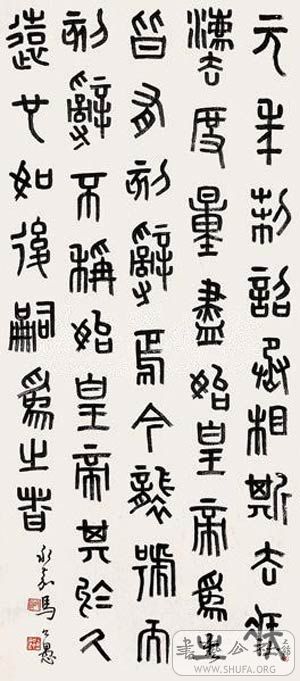 元年制詔丞相斯去疾
灋度量盡始皇帝為之
皆有刻辭焉今襲號而
刻辭不稱始皇帝其於久
遠也如後嗣為之者
永嘉馬公愚
WWW.SHUFA.ORG